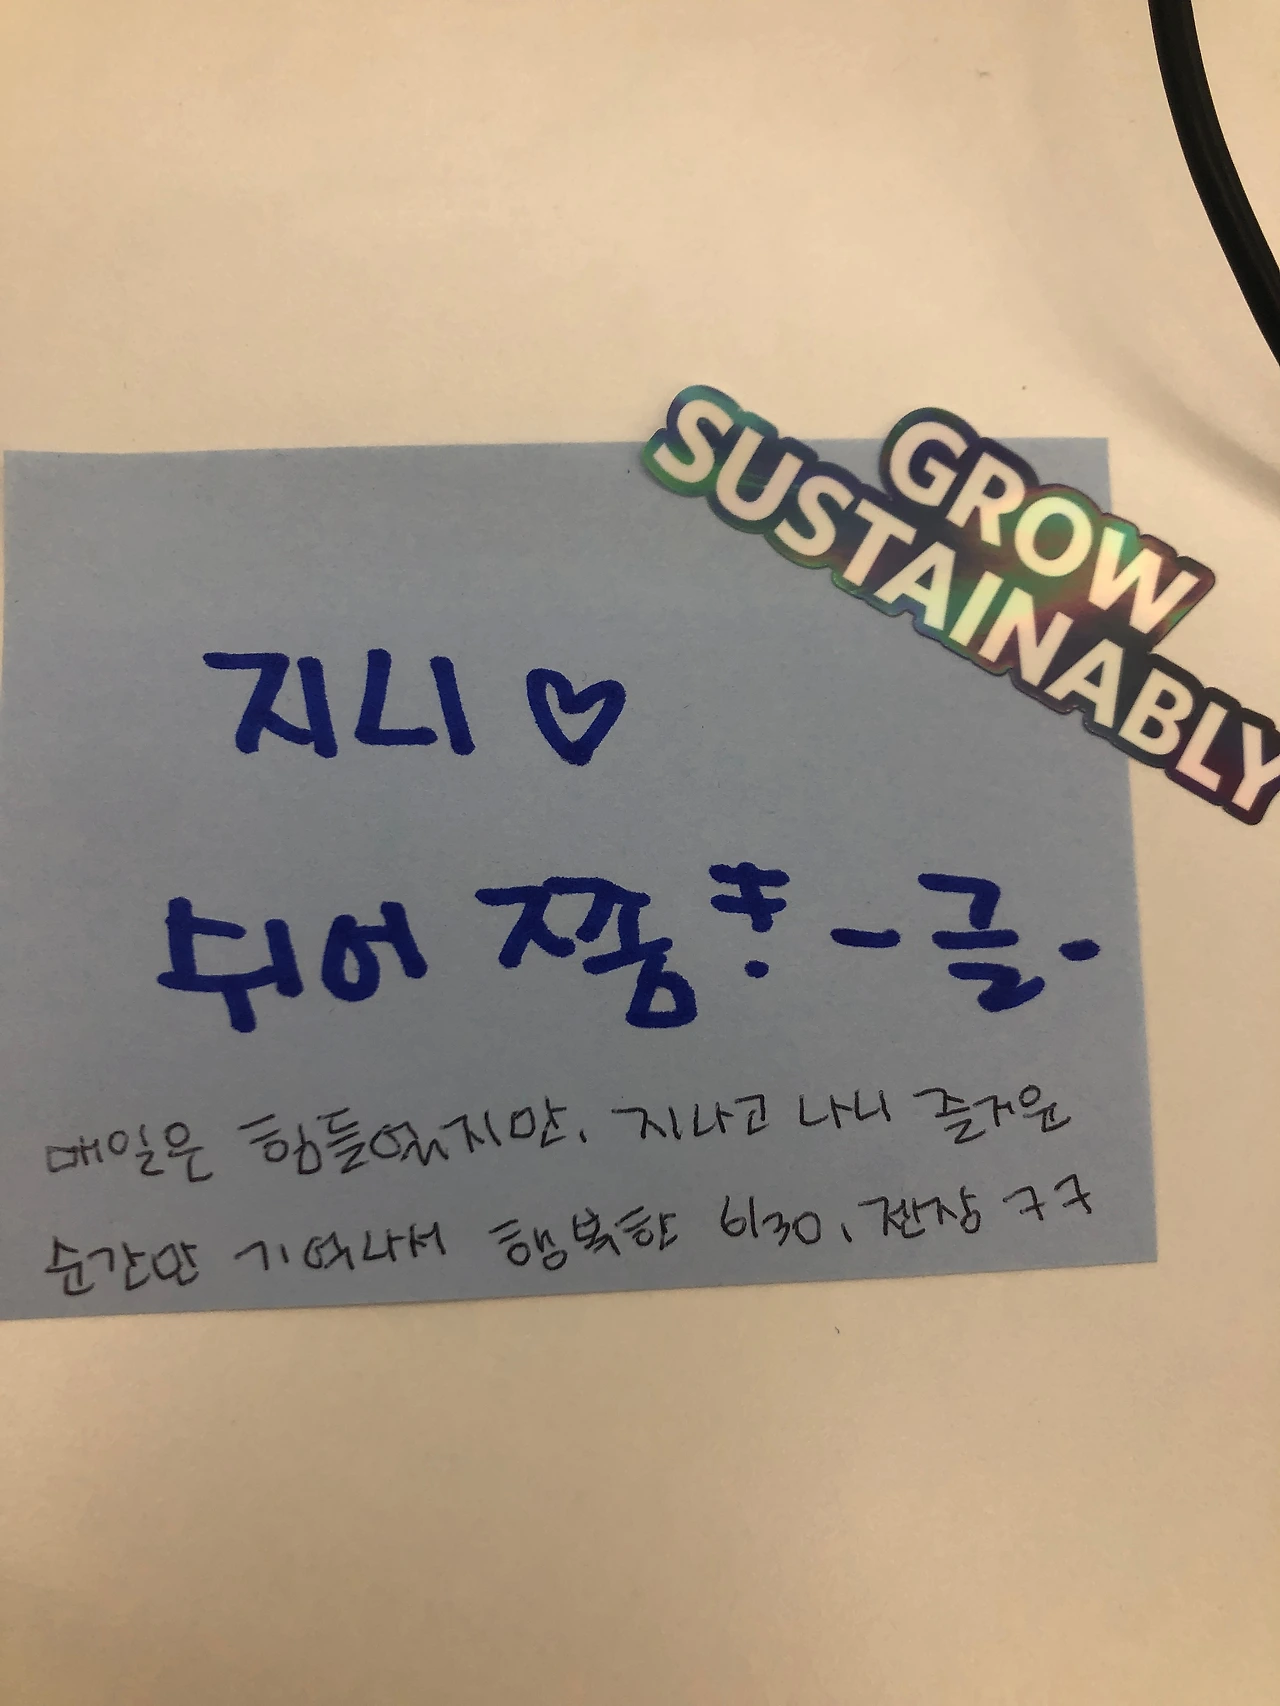 GROW
SUSTAINABLY
지니 ♡
쉬어 쭁 - 글 -
매일은 힘들었지만, 지나고 나니 즐거운
순간만 기억나서 행복한 6/30, 젠장 ㅋㅋ